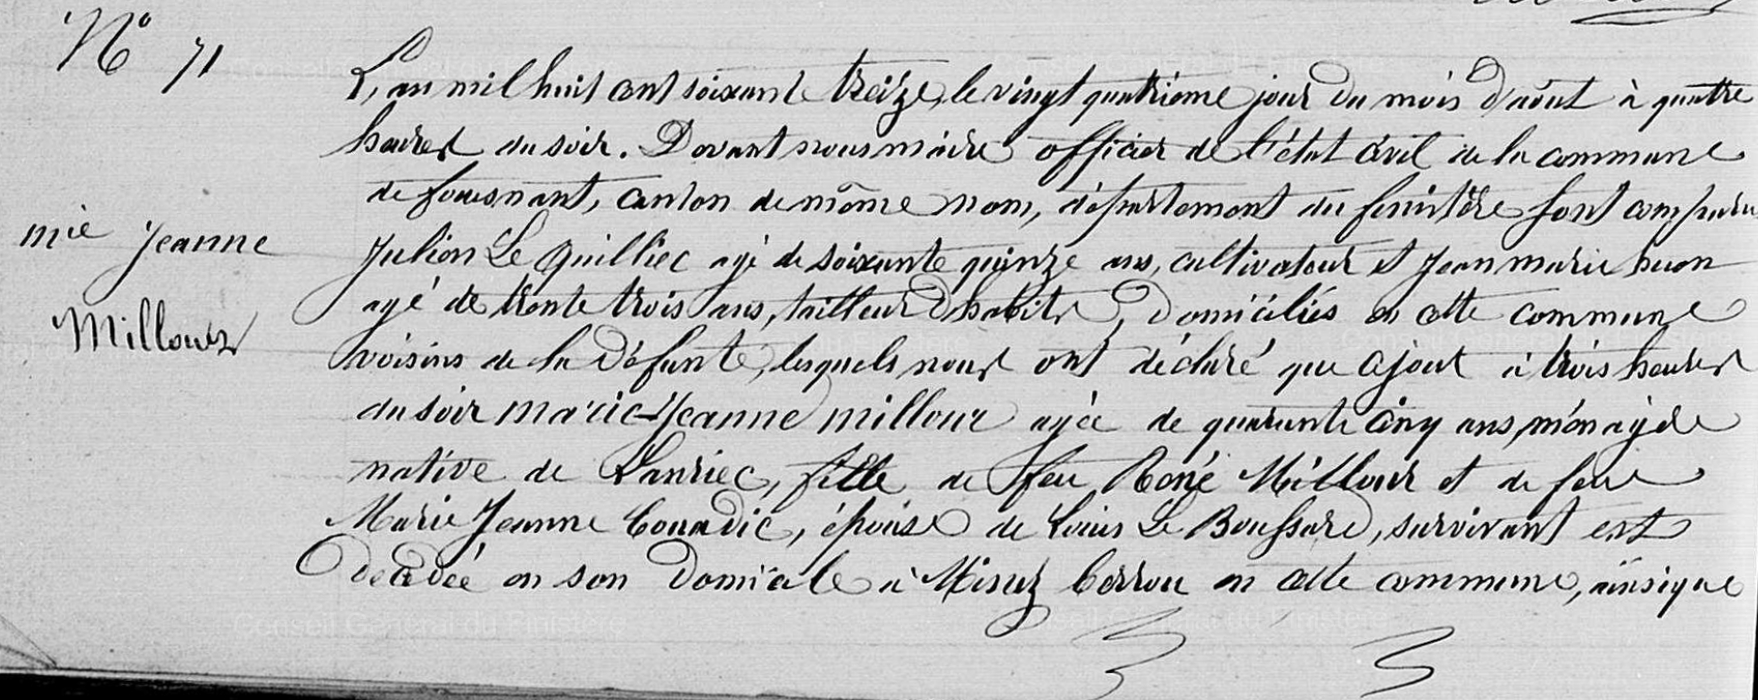 N° 71
L'an mil huit cent soixante treize, le vingt quatrième jour du mois d'aout à quatre
heures du soir. Devant nous maire officier de l'état civil de la commune
de fouesnant, canton de même nom, département du finistère sont comparu
Julien Le Quilliec agé de soixante quinze ans, cultivateur et Jean marie huon
mie Jeanne
Millour
agé de trente trois ans, tailleur d'habits, domiciliés en cette commune
voisins de la défunte, lesquels nous ont déclaré que ce jour à trois heures
du soir marie-Jeanne millour agée de quarante cinq ans, ménagère
native de Lanriec, fille de feu René Millour et de feue
Marie Jeanne Couadic, épouse de Louis Le Boussard, survivant est
décédée en son domicile à Mesnez Cerrou en cette commune, ainsi que